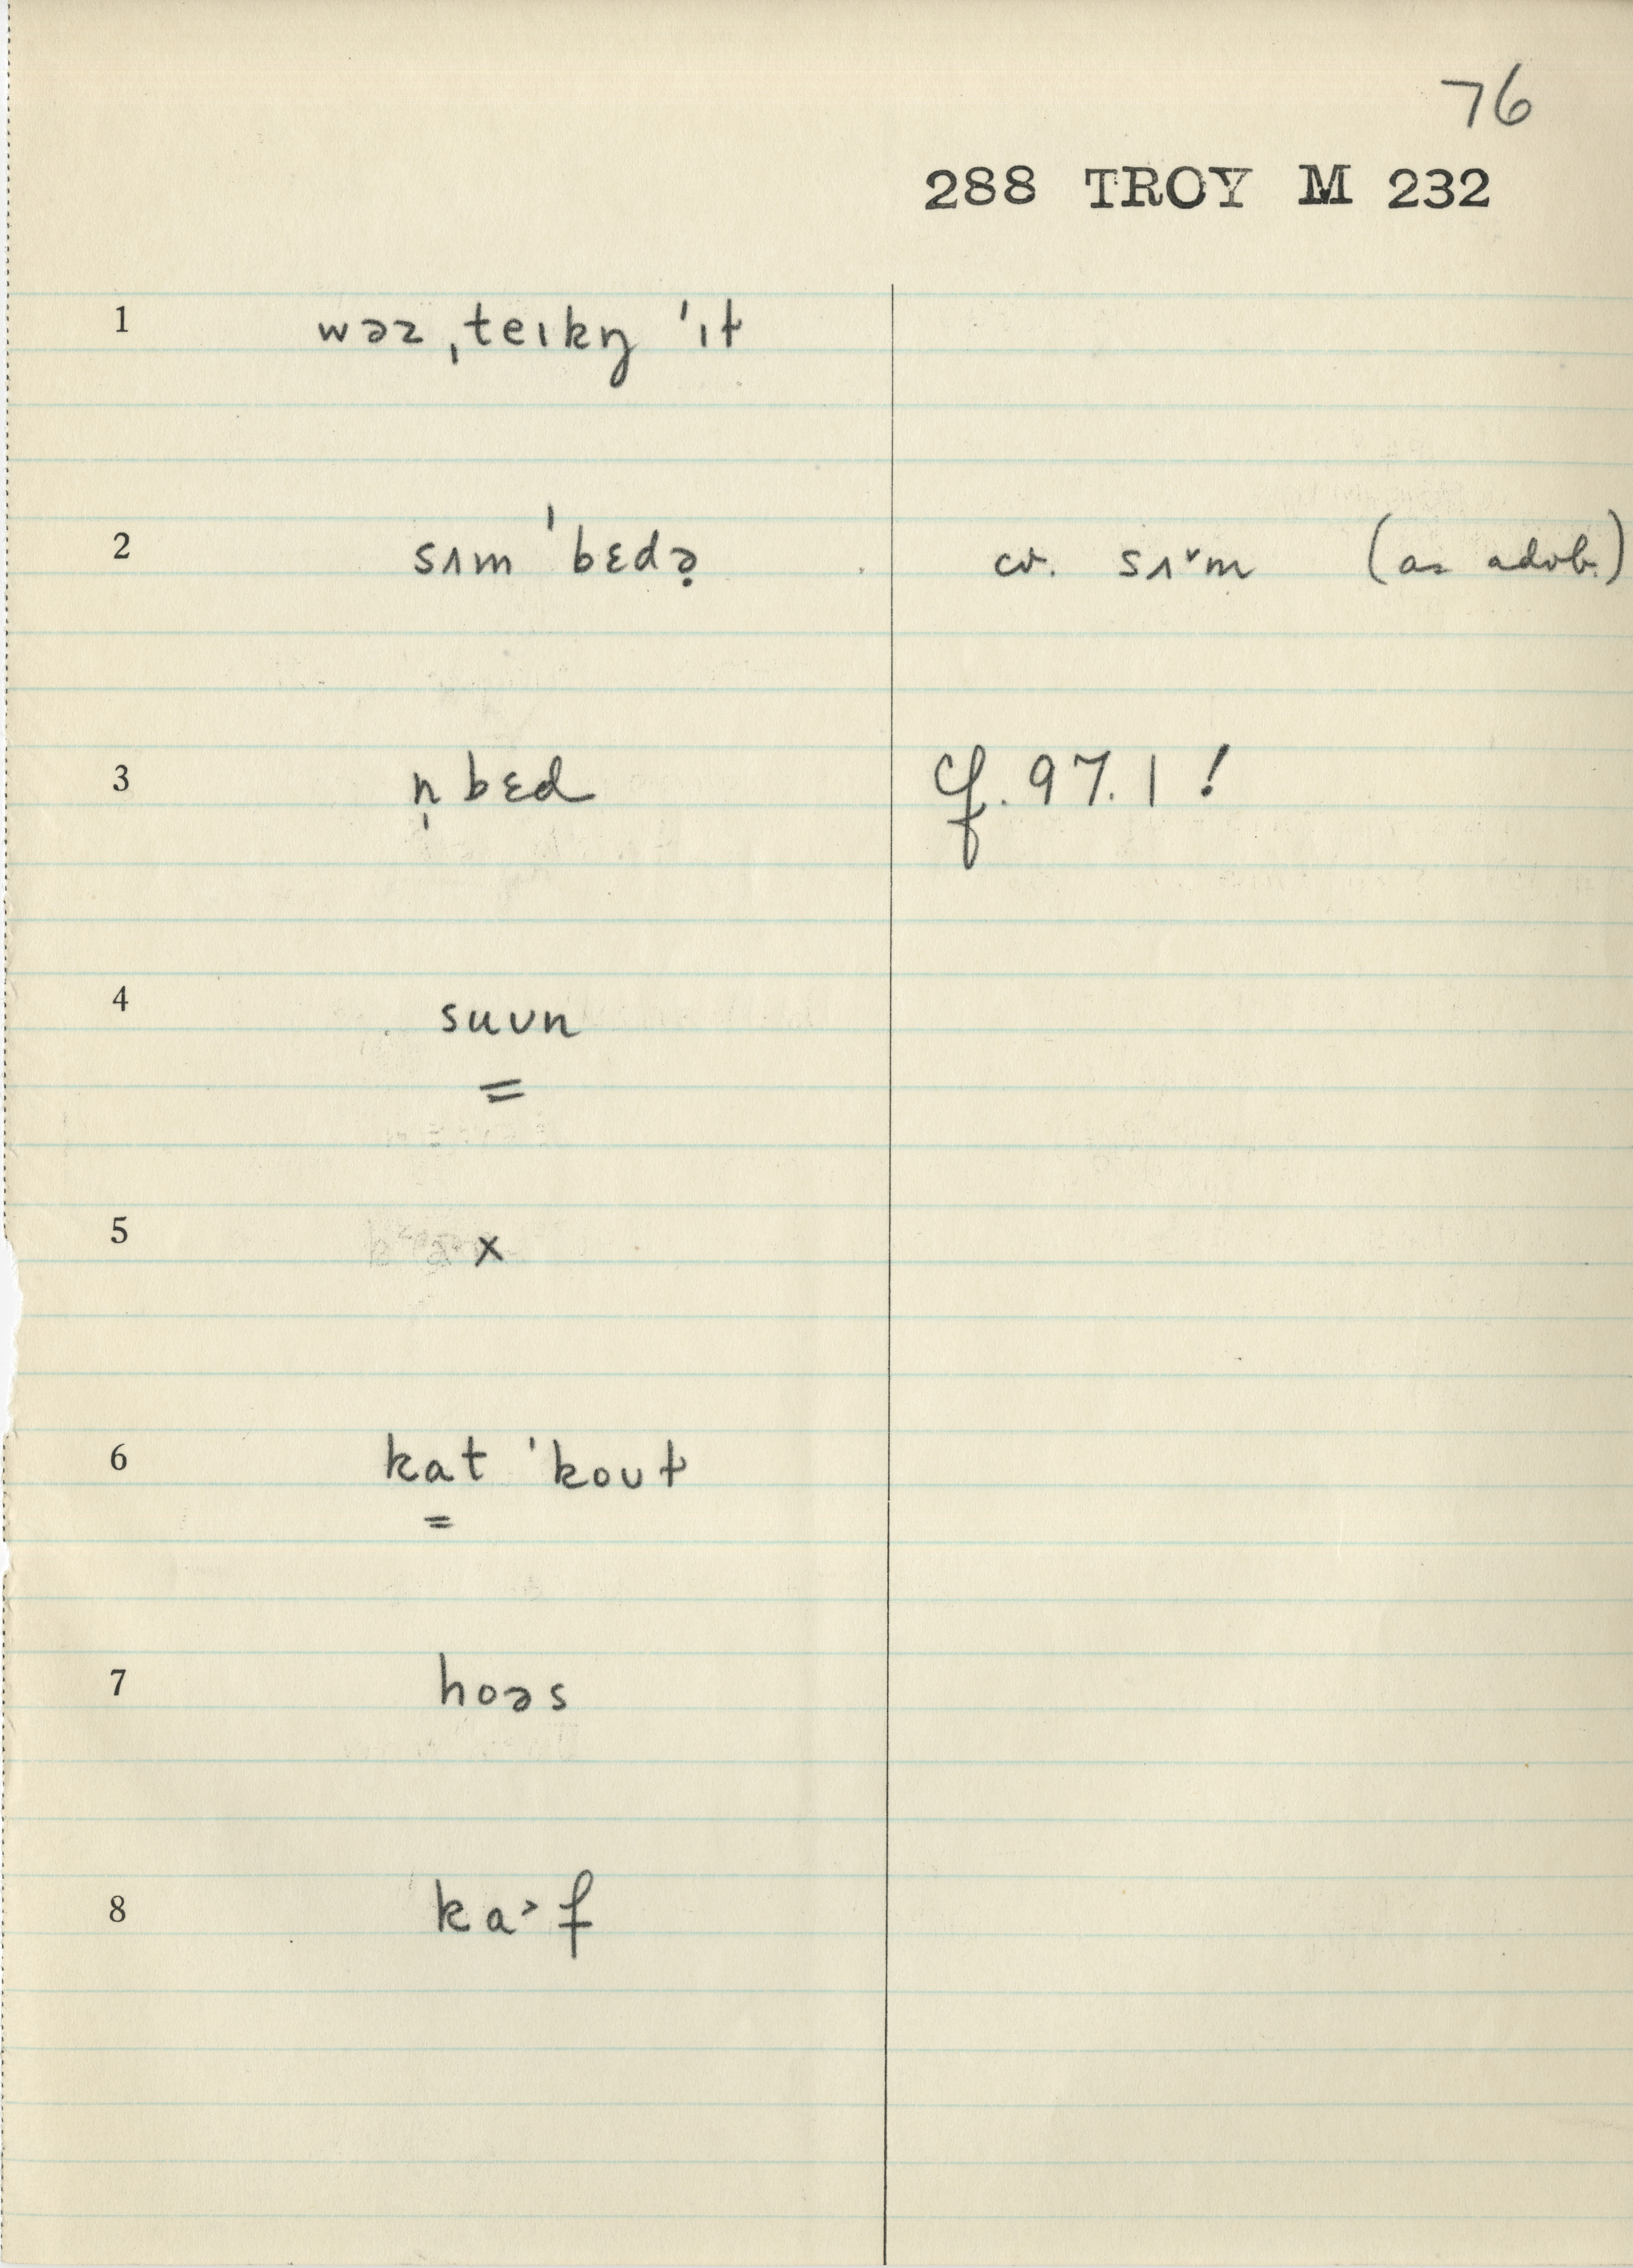 76
288 TROY M 232
1 wəz ˌteɪkŋ ˈɪt
2 sʌm ˈbɛdə̣ cv. sʌ˅m (as advb.)
3 n̩ bɛd cf. 97.1!
4 suʋn
=
5 x
6 kat ˈkoʊt
=
7 hoəs
8 ka˃f